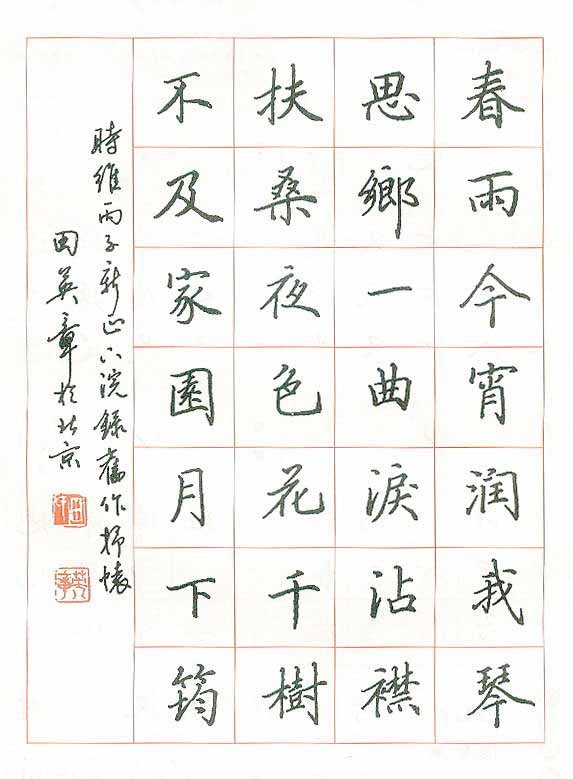 春雨今宵润我琴
思鄉一曲淚沾襟
扶桑夜色花千樹
不及家園月下筠
時維丙子新正六浣錄舊作抒懷
田英章於北京